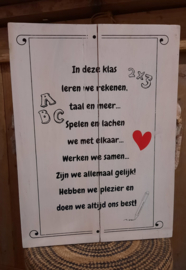 In deze klas
2x3
leren we rekenen,
taal en meer...
A
BC
Spelen en lachen
we met elkaar...
Werken we samen...
Zijn we allemaal gelijk!
Hebben we plezier en
doen we altijd ons best!